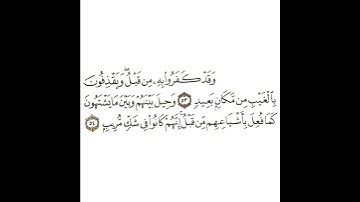 وَقَدْ كَفَرُوا۟ بِهِۦ مِن قَبْلُ ۖ وَيَقْذِفُونَ
بِٱلْغَيْبِ مِن مَّكَانٍۭ بَعِيدٍ ۝٥٣ وَحِيلَ بَيْنَهُمْ وَبَيْنَ مَا يَشْتَهُونَ
كَمَا فُعِلَ بِأَشْيَاعِهِم مِّن قَبْلُ ۚ إِنَّهُمْ كَانُوا۟ فِى شَكٍّ مُّرِيبٍۭ ۝٥٤